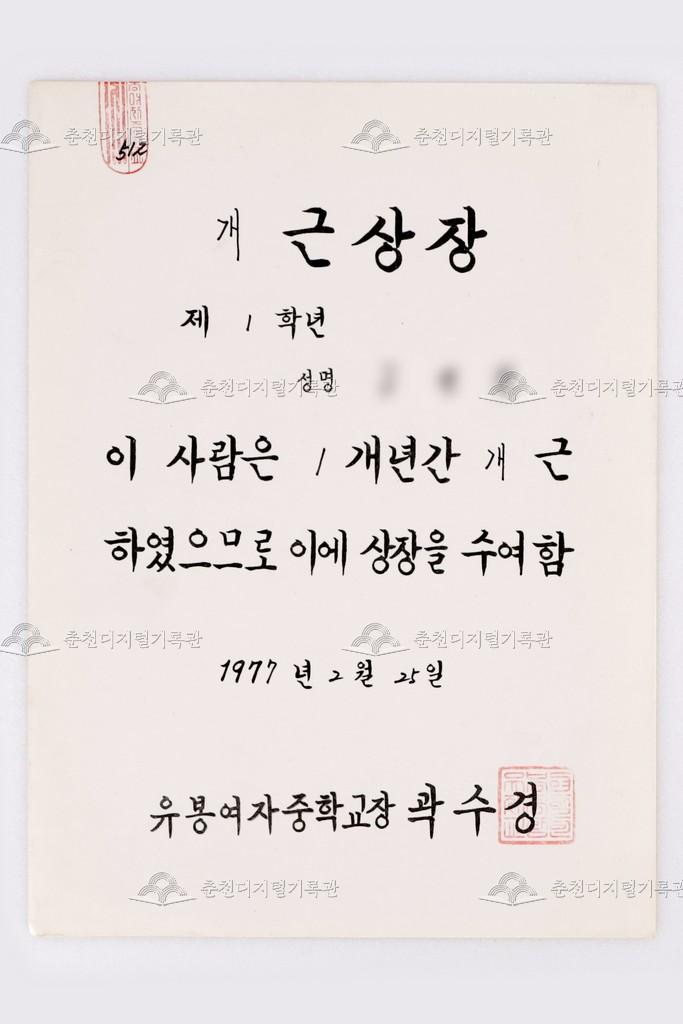 512
개 근상장
제 1 학년
성명
이 사람은 1 개년간 개 근
하였으므로 이에 상장을 수여함
1977 년 2 월 25 일
유봉여자중학교장 곽수경
춘천디지털기록관
춘천디지털기록관
춘천디지털기록관
춘천디지털기록관
춘천디지털기록관
춘천디지털기록관
춘천디지털기록관
춘천디지털기록관